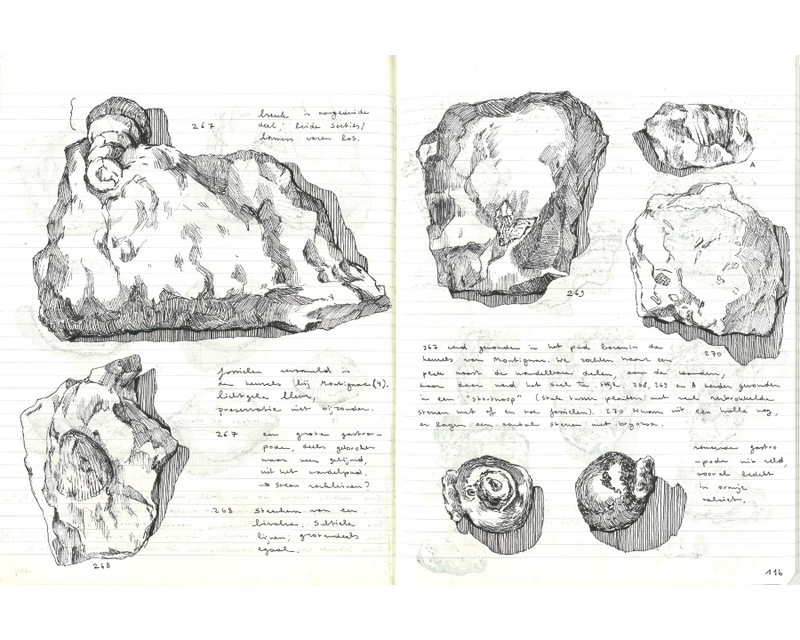 267
breuk is aangeduide
deel; beide secties/
waren los.
fossielen verzameld in
de heuvels bij Montignac (4).
lichtgele kleur,
preservatie niet bijzonder.
267 een grote gastro-
pode, deels gebroken
maar weer gelijmd,
uit het wandelpad.
→ steen verkleinen?
268 steenkern van een
bivalve. Subtiele
lijnen; grotendeels
egaal.
268
A
269
270
267 werd gevonden in het pad boven in de
heuvels van Montignac. We zochten naar een
plek naast de wandelbare delen, aan de randen,
maar daar werd het snel te steil. 268, 269 en A werden gevonden
in een "storthoop" (stuk tussen planten, met veel verbrokkelde
stenen met af en toe fossielen). 270 kwam uit een holle weg,
er lagen een aantal stenen met bryozoa.
gastro
-pode uit veld,
vooral bedekt
in oranje
calciet.
116